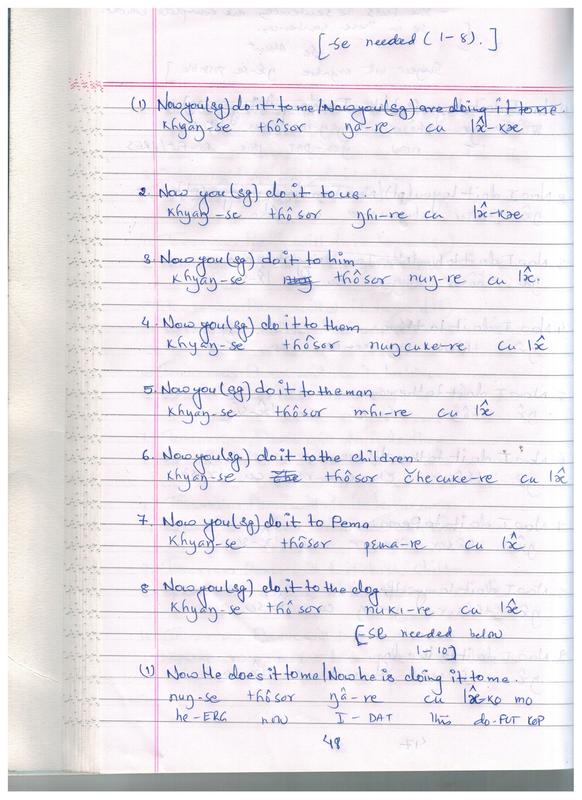 [-se needed (1-8).]
(1) Now you(sg) do it to me/Now you(sg) are doing it to me.
Khyaŋ-se thôsor ŋâ-re cu lʌ̂-kæ
2. Now you(sg) do it to us.
Khyaŋ-se thôsor ŋhi-re cu lʌ̂-kæ
3. Now you(sg) do it to him
Khyaŋ-se thôsor nuŋ-re cu lʌ̂.
4. Now you(sg) do it to them
Khyaŋ-se thôsor nuŋcuke-re cu lʌ̂
5. Now you(sg) do it to the man
Khyaŋ-se thôsor mhi-re cu lʌ̂
6. Now you(sg) do it to the children.
Khyaŋ-se thôsor čhecuke-re cu lʌ̂
7. Now you(sg) do it to Pema
Khyaŋ-se thôsor pema-re cu lʌ̂
8. Now you(sg) do it to the dog.
Khyaŋ-se thôsor nuki-re cu lʌ̂
[-se needed below
1-10]
(1) Now He does it to me/Now he is doing it to me.
nuŋ-se thôsor ŋâ-re cu lʌ̂-ko mo
he-ERG now I-DAT this do-FUT COP
48